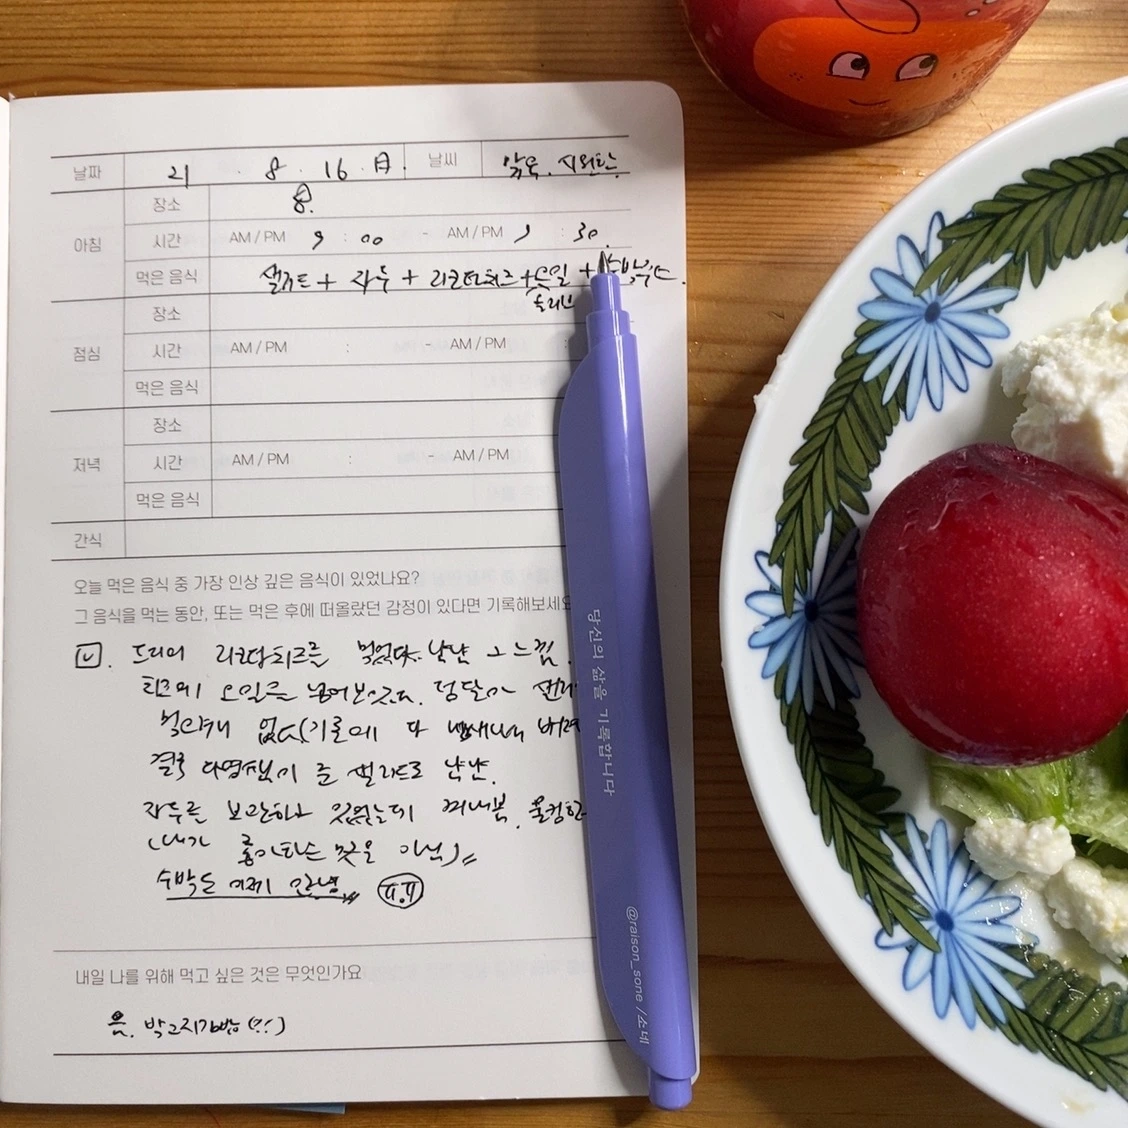 날짜 21 . 8 . 16 . 月. 날씨 맑음. 시원한.
아침
장소 홈.
시간 AM / PM 9 : 00 - AM / PM 9 : 30.
먹은 음식 샐러드 + 자두 + 리코타치즈 + 오일 + 수박주스.
올리브
점심
장소
시간 AM / PM : - AM / PM :
먹은 음식
저녁
장소
시간 AM / PM : - AM / PM
먹은 음식
간식
오늘 먹은 음식 중 가장 인상 깊은 음식이 있었나요?
그 음식을 먹는 동안, 또는 먹은 후에 떠올랐던 감정이 있다면 기록해보세요
드디어 리코타치즈를 먹었다. 냠냠 그 느낌.
오일를 넣어보았다.
없다(기름에 다
결국 이 준 샐러드로 냠냠.
자두를 보관하고 있었는데 꺼내봄. 물컹한
(내가 좋아하는 맛은 아님)
수박는 이제 안녕 ㅠ.ㅠ
내일 나를 위해 먹고 싶은 것은 무엇인가요
음. 박고지김밥(??)
당신의 삶을 기록합니다
@raison_sone / 소네